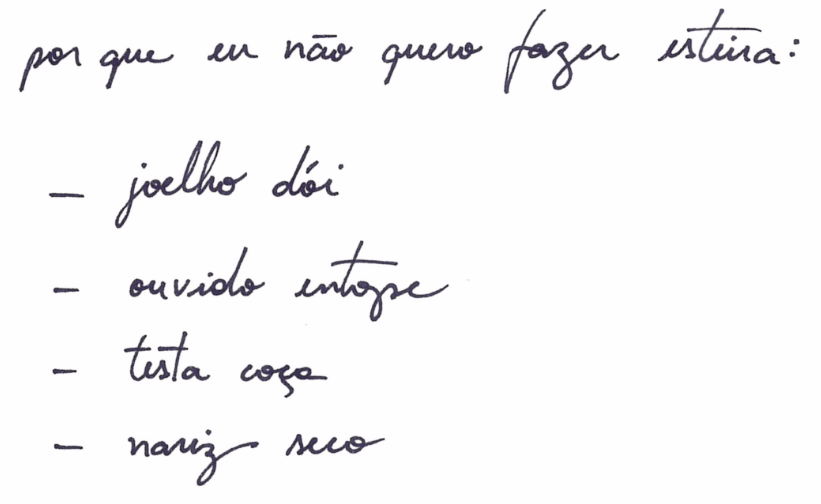 por que eu não quero fazer esteira:
– joelho dói
– ouvido entope
– testa coça
– nariz seco